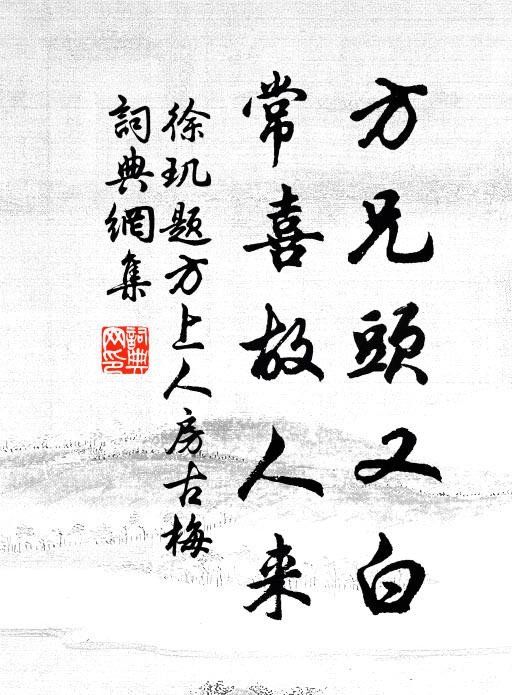 方兄頭又白
常喜故人来
徐玑题方上人房古梅
詞典網集
詞典网印